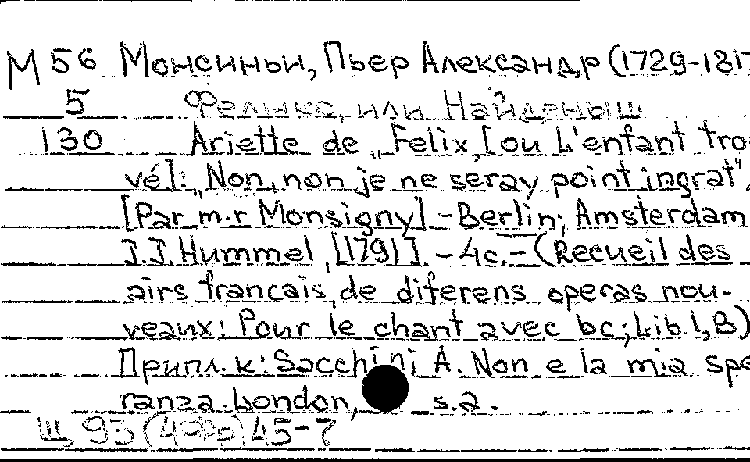 М 56 Монсиньи, Пьер Александр (1729-1817
5 Феликс, или Найденыш
130 Ariette de „Felix, [ou L'enfant tro-
vé]: „Non, non je ne seray point ingrat".
[Par m-r Monsigny] - Berlin; Amsterdam
J.J. Hummel, [1791]. - 4c. - (Recueil des
airs francais, de diferens operas nou-
veaux: Pour le chant avec bc; Lib 1, B)
Припл. к: Sacchini A. Non e la mia spe
ranza. London, s.a.
Ш 93 45-7